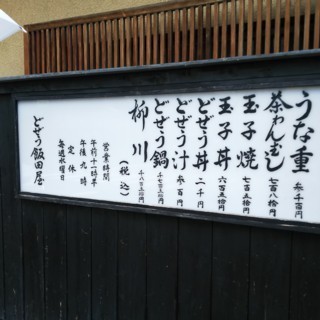 うな重 参千百円
茶わんむし 七百八拾円
玉子焼 七百五拾円
玉子丼 六百五拾円
どぜう丼 二千円
どぜう汁 参百円
どぜう鍋
柳川
(税込)
営業時間
午前十一時半
午後九時
定休
毎週水曜日
どぜう飯田屋